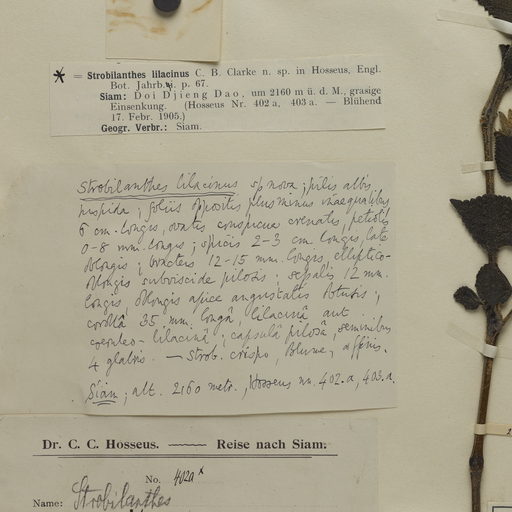 * = Strobilanthes lilacinus C. B. Clarke n. sp. in Hosseus, Engl.
Bot. Jahrb. p. 67.
Siam: Doi Djieng Dao, um 2160 m ü. d. M., grasige
Einsenkung. (Hosseus Nr. 402 a, 403 a. — Blühend
17. Febr. 1905.)
Geogr. Verbr.: Siam.
Strobilanthes lilacinus sp nova; pilis albis
hispida; foliis oppositis plus minus inaequalibus
6 cm. longis, ovatis conspicue crenatis, petiolis
0-8 mm. longis; spicis 2-3 cm longis, late
oblongis; bracteis 12-15 mm. longis elliptico-
oblongis subviscide pilosis; sepalis 12 mm.
longis, oblongis apice angustatis obtusis;
corollâ 35 mm. longâ, lilacinâ aut
coeruleo-lilacinâ; capsulâ pilosâ, seminibus
4 glabris. — Strob. crispo, Blume, affinis.
Siam; alt. 2160 metr., Hosseus nn. 402.a, 403.a.
Dr. C. C. Hosseus. Reise nach Siam.
No. 402a x
Name: Strobilanthes